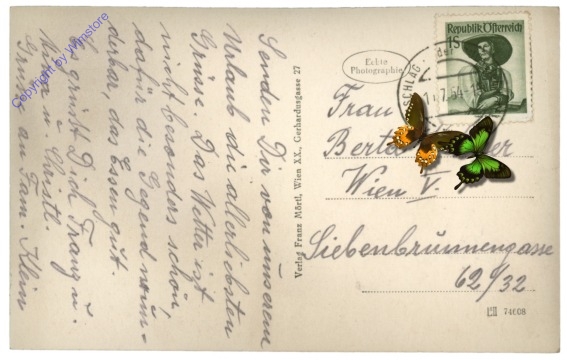 Senden Dir von unserem
Urlaub die allerliebsten
Grüsse. Das Wetter ist
nicht besonders schön,
dafür die Gegend wun-
derbar, das Essen gut
Es grüsst Dich Franz u.
u. Christl.
Grüsse an Fam. Klein
Copyright by Wimstore
Verlag Franz Mörtl, Wien XX., Gerhardusgasse 27
Echte
Photographie
Republik Österreich
1S
SCHLAG
7.54-1
Frau
Wien V.
Siebenbrunnengasse
62/32
74608